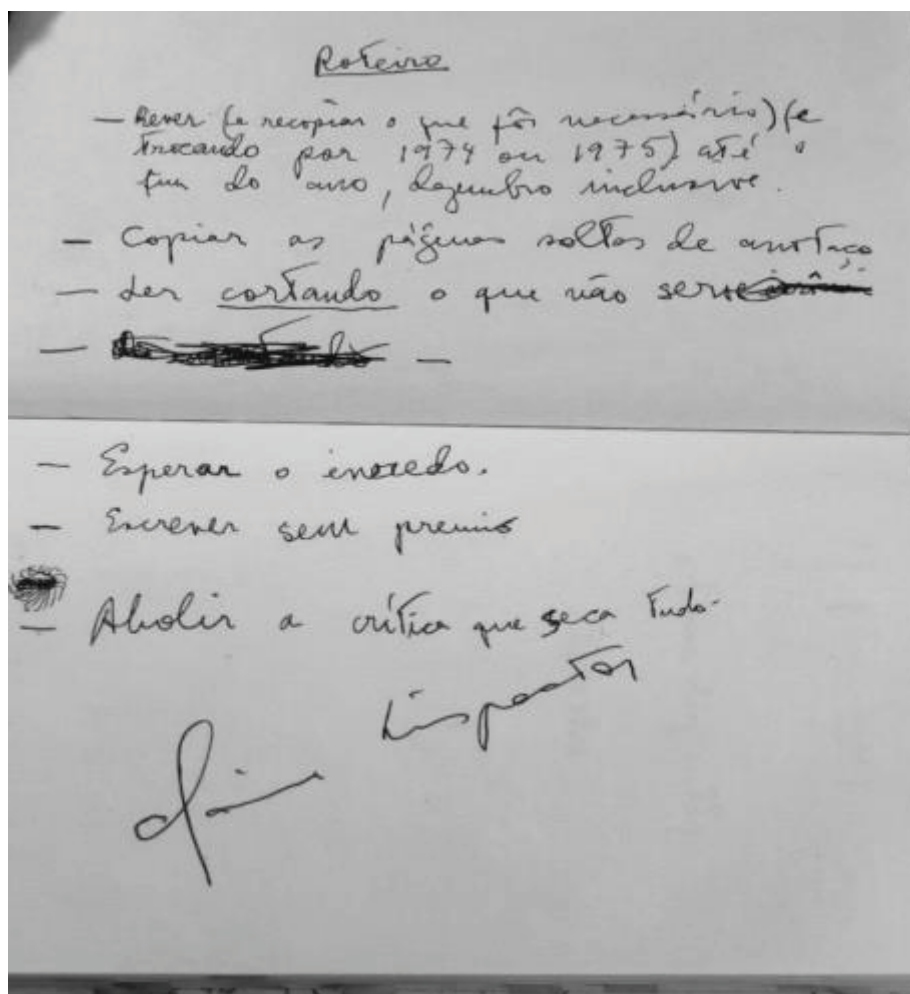 Roteiro
— Rever (e recopiar o que fôr necessário) (e
trocando por 1974 ou 1975) até o
fim do ano, dezembro inclusive.
— Copiar as páginas soltas de anotaço
— Ler cortando o que não serve
—  —
— Esperar o enredo.
— Escrever sem premio
— Abolir a crítica que seca tudo.
Lispector